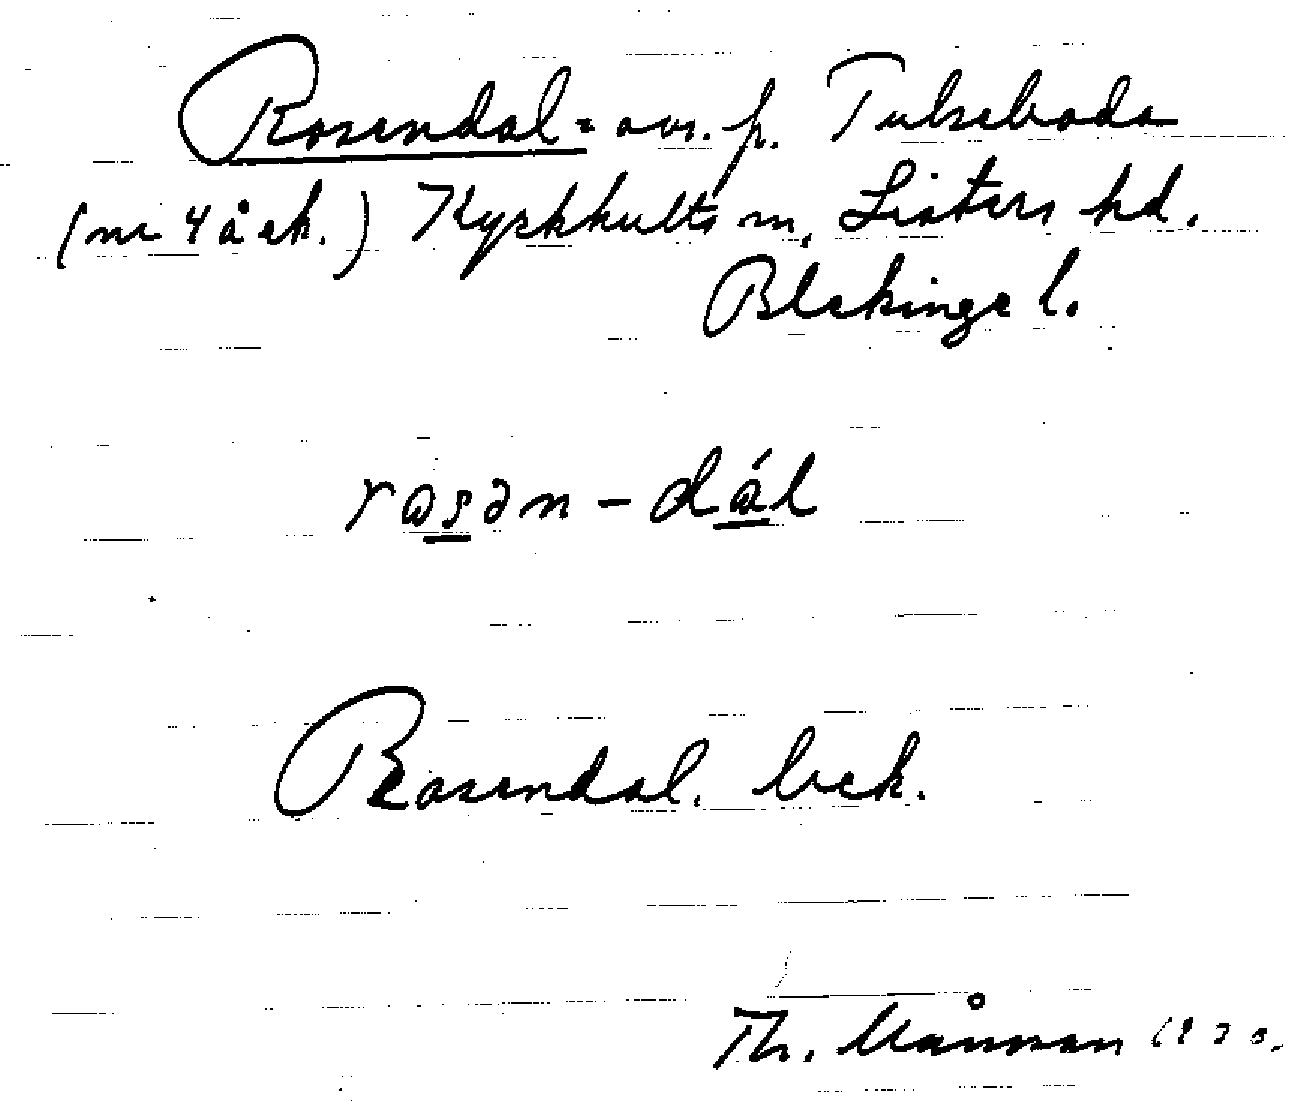 Rosendal = avs. p. Tulseboda
(nr 4 å ek.) Kyrkhults sn, Listers hd.
Blekinge l.
rɷsən - dál
Rosendal. bek.
Th. Månsson 1930.